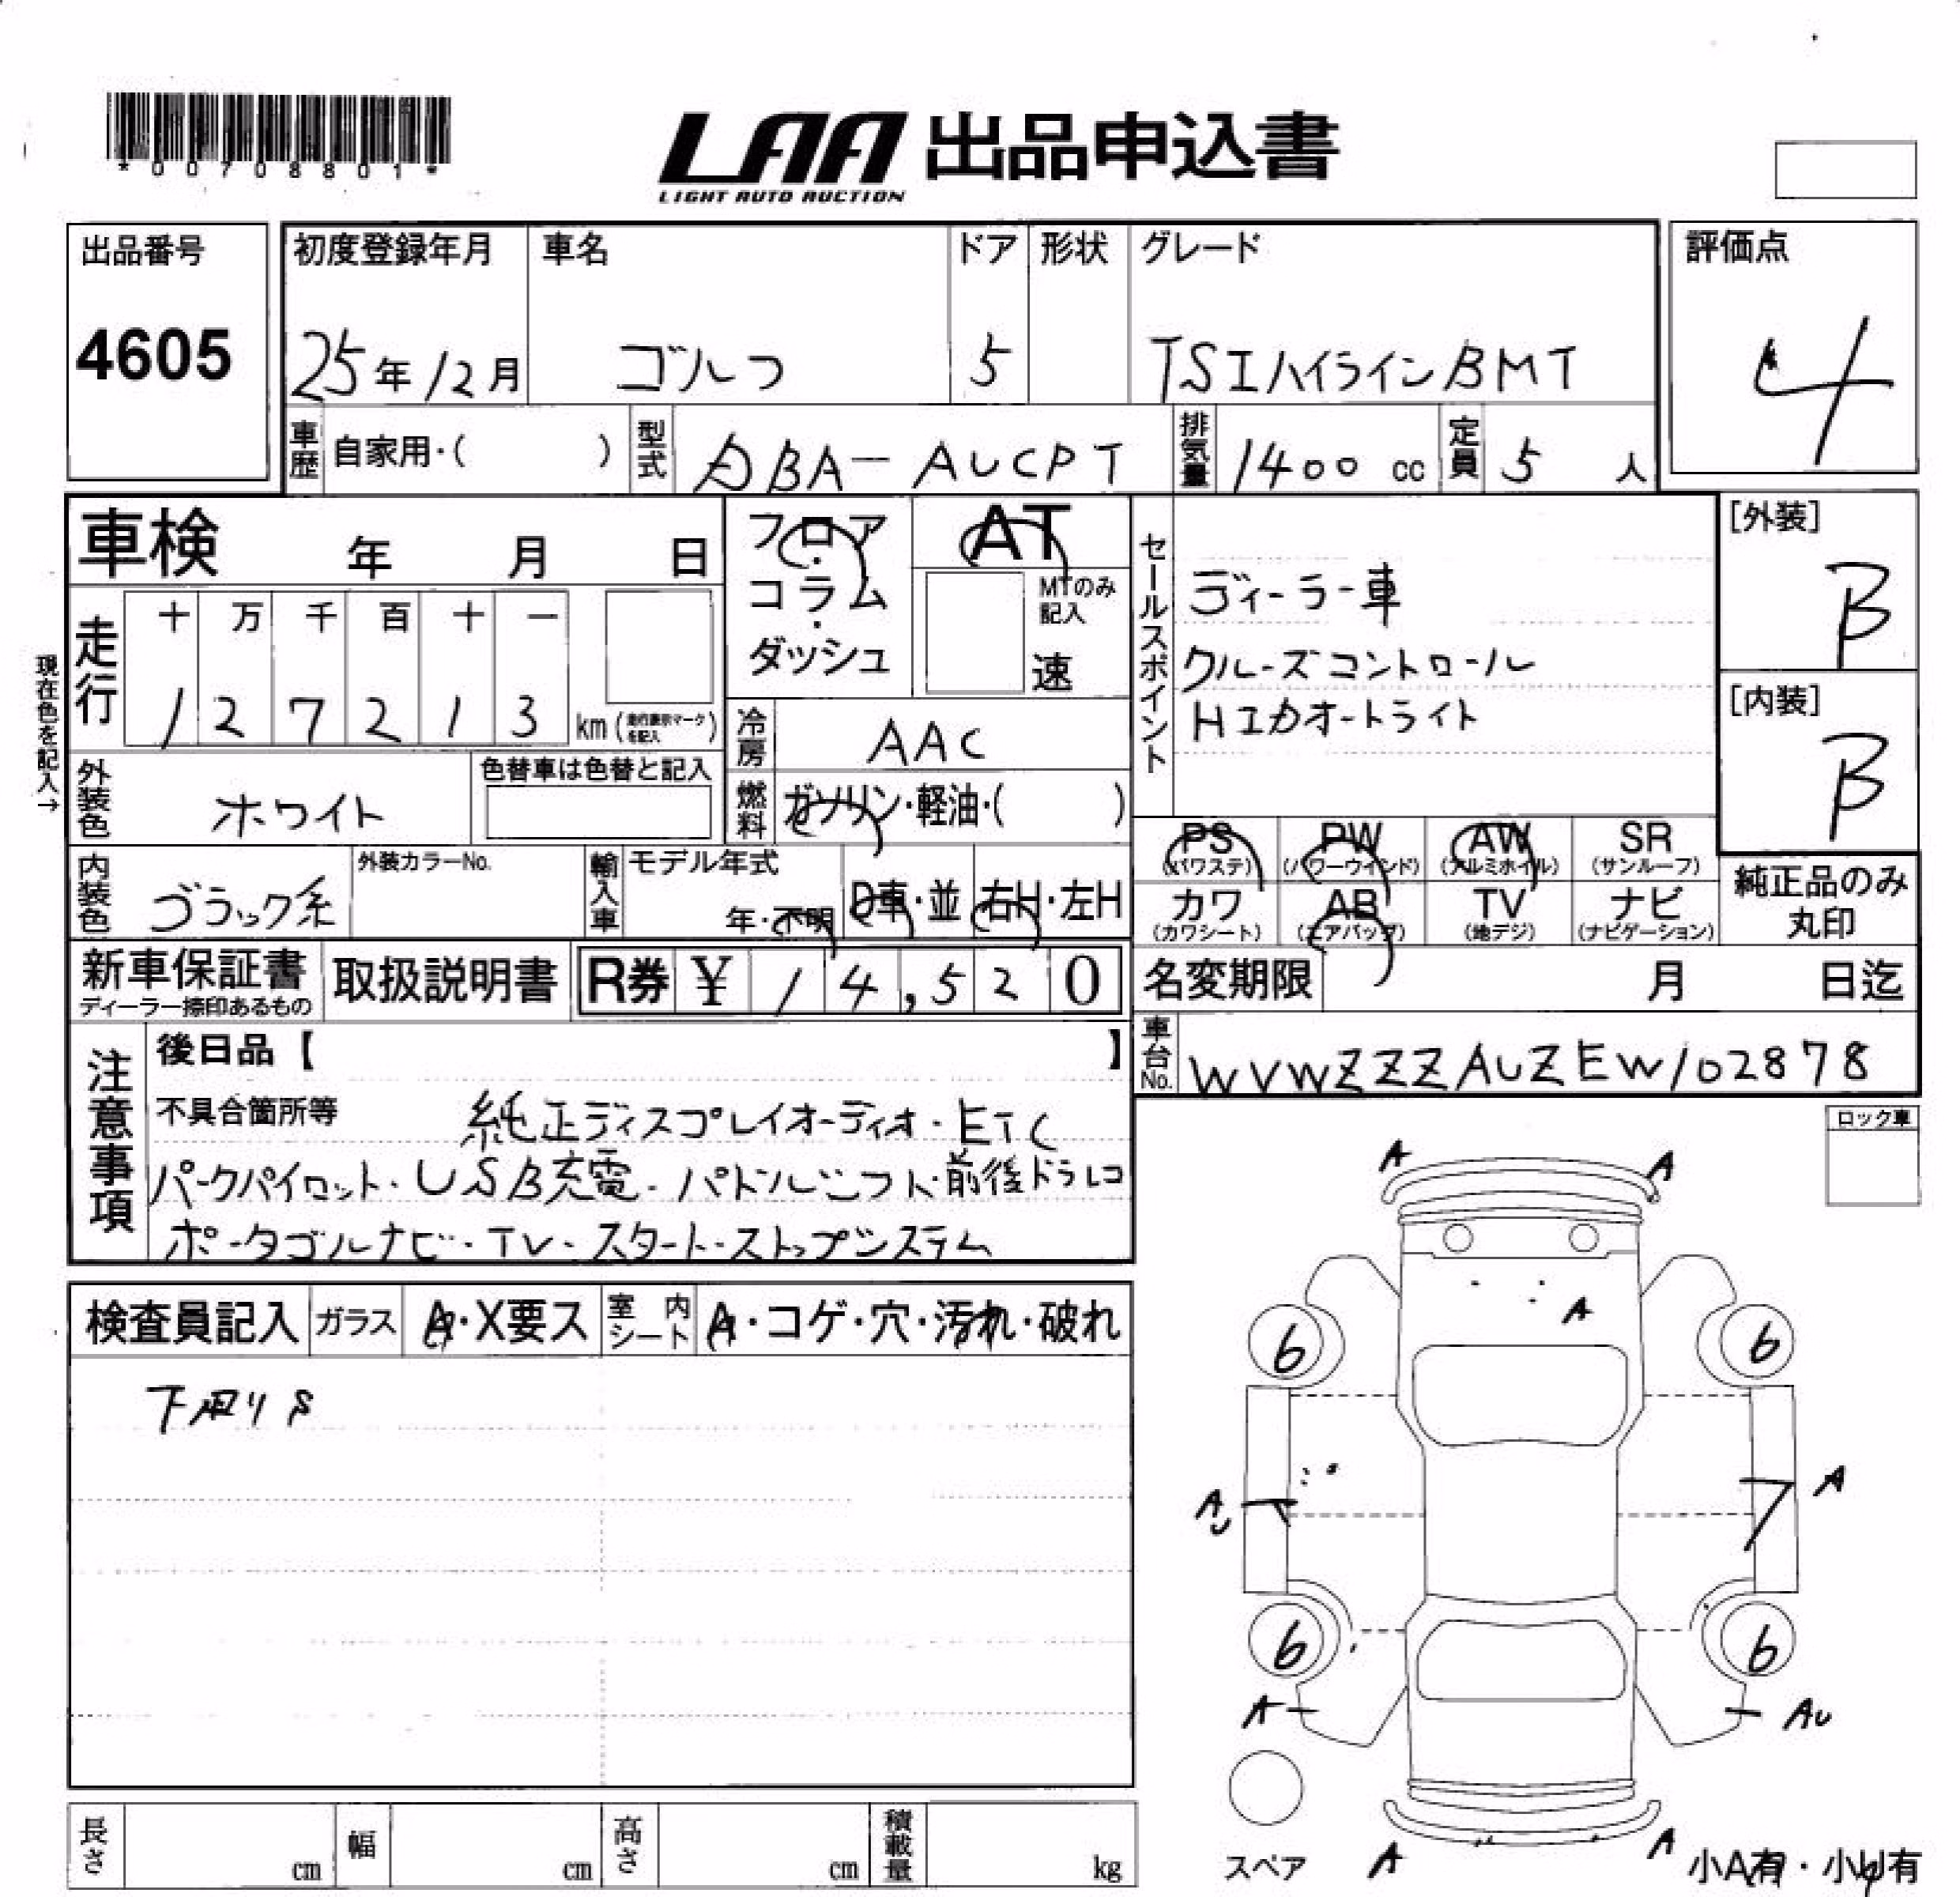 *00708801*
LAA 出品申込書
LIGHT AUTO AUCTION
出品番号
4605
初度登録年月
25年12月
車名
ゴルフ
ドア
5
形状
グレード
TSIハイラインBMT
評価点
4
車歴
自家用・( )
型式
DBA-AUCPT
排気量
1400 cc
定員
5 人
車検 年 月 日
フロア・コラム・ダッシュ
AT
MTのみ記入
速
セールスポイント
ディーラー車
クルーズコントロール
HIDオートライト
[外装]
B
[内装]
B
現在色を記入→
走行
十 万 千 百 十 一
1 2 7 2 1 3
km (走行表示マークを記入)
冷房
AAC
外装色
ホワイト
色替車は色替と記入
燃料
ガソリン・軽油・( )
PS
(パワステ)
PW
(パワーウインド)
AW
(アルミホイル)
SR
(サンルーフ)
カワ
(カワシート)
AB
(エアバッグ)
TV
(地デジ)
ナビ
(ナビゲーション)
純正品のみ
丸印
内装色
ブラック系
外装カラーNo.
輸入車
モデル年式
年・不明
D車・並
右H・左H
新車保証書
ディーラー捺印あるもの
取扱説明書
R券 ¥ 14,520
名変期限 月 日迄
車台No.
WVWZZZAUZEW102878
注意事項
後日品【 】
不具合箇所等
純正ディスプレイオーディオ・ETC
パークパイロット・USB充電・パドルシフト・前後ドラレコ
ポータブルナビ・TV・スタート・ストップシステム
ロック車
検査員記入
ガラス
A・X要ス
室内シート
A・コゲ・穴・汚れ・破れ
下廻りS
A A
A
6 6
AU A
6 6
A AU
スペア
A A
小A有・小U有
長さ cm
幅 cm
高さ cm
積載量 kg